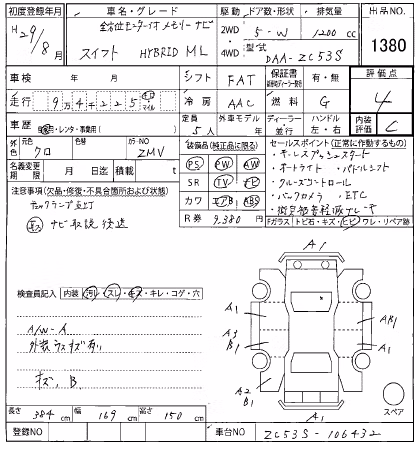 初度登録年月 車名・グレード ドア数・形状 排気量 出品NO.
H29/8月 全方位モニター付 メモリーナビ 2WD 5-W 1200cc 1380
スイフト HYBRID ML 4WD 型式 DAA-ZC53S
車検 年 月 シフト FAT 保証書 有・無 評価点
走行 9万4千225 キロ マイル 冷房 AAC 燃料 G 4
車歴 自家用・レンタ・事業用( ) 定員 5人 外車モデル 年 ディーラー 並行 ハンドル 左・右 内装評価 C
外色 クロ 色替 カラーNO ZMV 装備品(純正品に限る) セールスポイント(正常に作動するもの)
名義変更期限 月 日迄 積載量 t PS PW AW ・キーレスプッシュスタート
注意事項(欠品・修復・不具合箇所および状態) SR TV ナビ ・オートライト ・パドルシフト
チェックランプ点灯 カワ エアB ABS ・クルーズコントロール
ナビ取説後送 R券 9,380円 ・バックカメラ ・ETC
・衝突被害軽減ブレーキ
Fガラス トビ石・キズ・ヒビ・ワレ・リペア跡
検査員記入 内装 汚レ・スレ・キズ・キレ・コゲ・穴
A/W-A
外装 ウスキズ有り
キズ、B、
A1
A1 AB1
A3 B1 A1
A2 B1
A1
スペア
長さ 384cm 幅 169cm 高さ 150cm
登録NO 車台NO ZC53S-106432